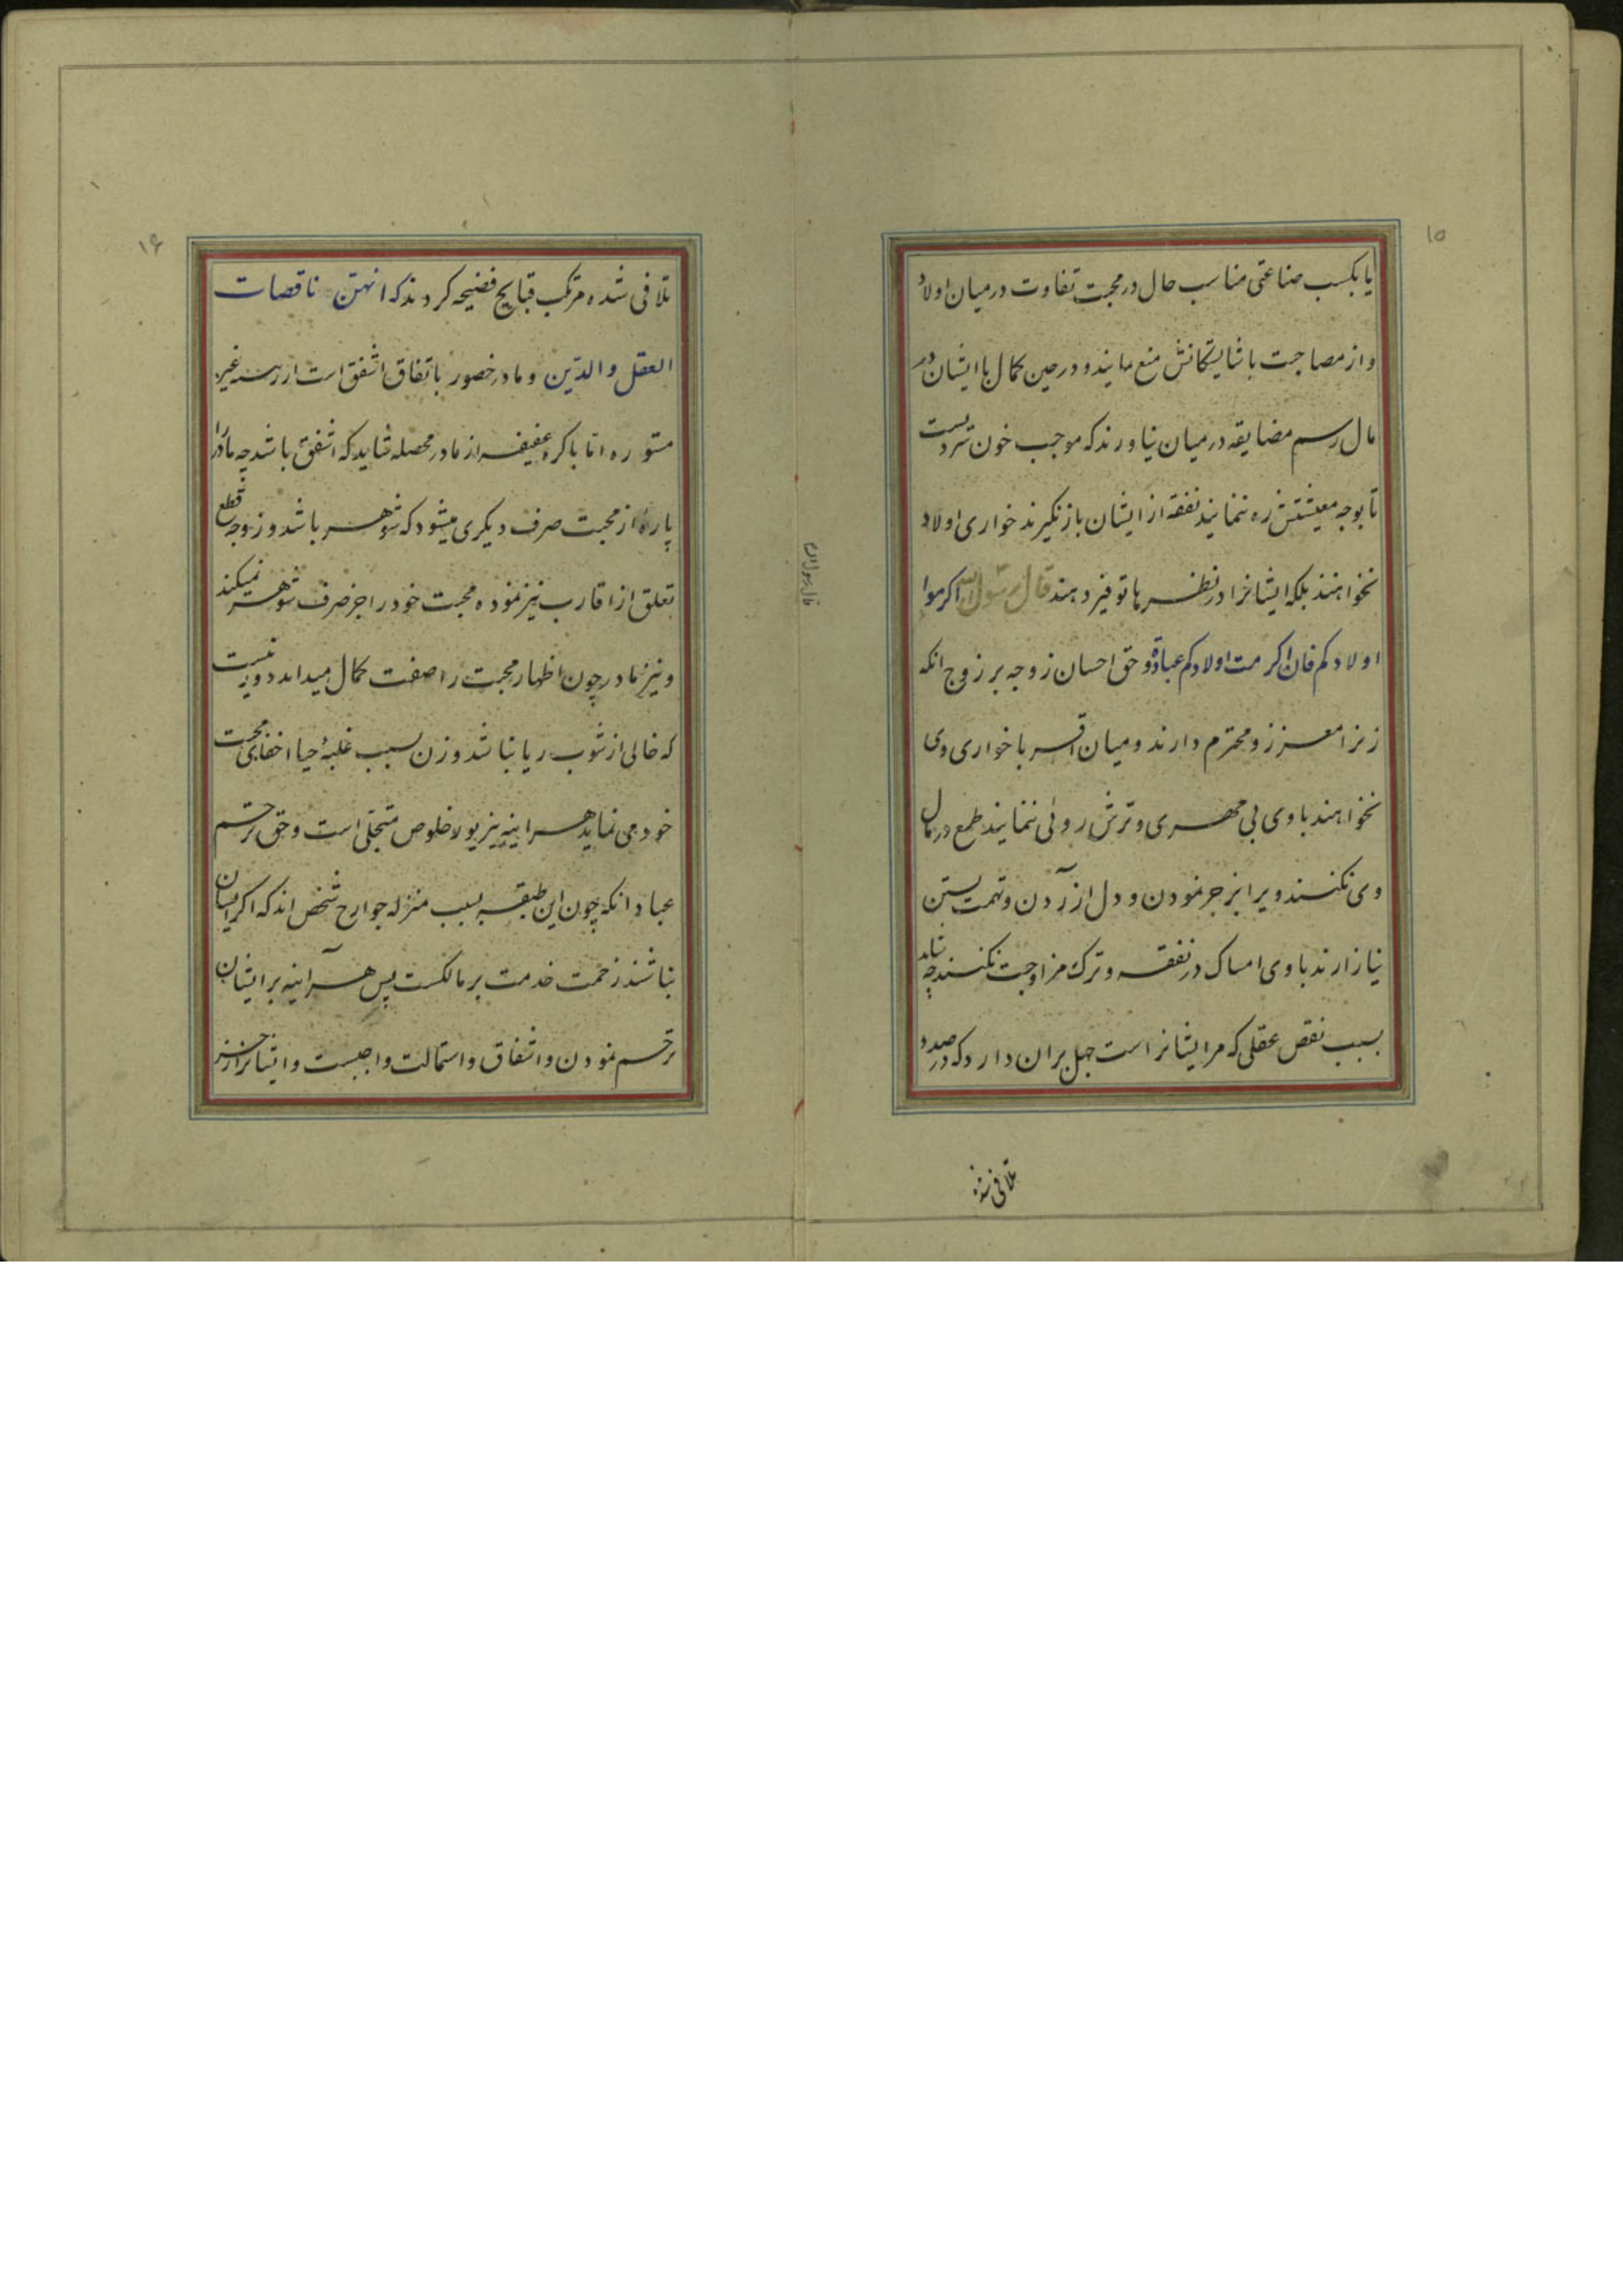 ۱۵
یا بکسب صناعتی مناسب حال در محبت تفاوت در میان اولاد
و از مصاحبت با شایستکانش منع مانیدو در حین کمال با ایشان در
مال رسم مضایقه در میان نیاورند که موجب خون سردیست
تا بوجه معیشتش ره ننمایند نفقه از ایشان باز نکیرند خواری اولاد
نخواهند بلکه ایشانرا در نظرها توفیر دهند قال رسول الله اکرموا
اولادکم فان اکرمت اولادکم عبادة و حق احسان زوجه بر زوج انکه
زنرا معزز و محترم دارند و میان اقربا خواری وی
نخواهند با وی بی مهری و ترش روئی ننمایند طمع در مال
وی نکنند ویرا بزجر نمودن و دل ازردن و تهمت بستن
نیازارند با وی امساک در نفقه و ترک مزاوجت نکنند چه شاید
بسبب نقص عقلی که مر ایشانراست جهل بران دارد که در صدد
تلافی شده
قال رسول الله
۱۶
تلافی شده مرتکب قبایح فضیحه کردند که انهن ناقصات
العقل والدین و مادر خصور باتفاق اشفق است از رسیه غیر
مستوره اما باکره عفیفه از مادر محصله شاید که اشفق باشد چه مادر را
پاره از محبت صرف دیکری میشود که شوهر باشد و زوجه قطع
تعلق از اقارب نیز نموده محبت خود را جز صرف شوهر نمیکند
و نیز مادر چون اظهار محبت را صفت کمال میداند دور نیست
که خالی از شوب ریا نباشد و زن بسبب غلبهٔ حیا اخفای محبت
خود می نماید هراینه بزیور خلوص متجلی است و حق ترحم
عباد انکه چون این طبقه بسبب منزله جوارح شخص اند که اکر ایشان
نباشند زحمت خدمت بر مالکست پس هراینه بر ایشان
ترحم نمودن و اشفاق و استمالت واجبست و ایشانرا از جز